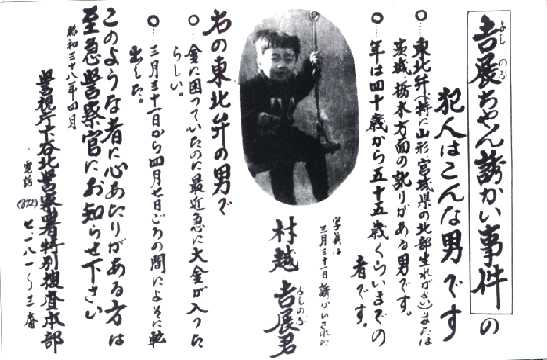 吉展ちゃん誘かい事件の
よし のぶ
犯人はこんな男です
○…東北弁(特に山形 宮城県の北部生れがき)または
茨城 栃木方面の訛りがある男です。
○…年は四十歳から五十五歳くらいまでの
者です。
写真は
三月三十一日 誘かいされた
村越 吉展君
よしのぶ
右の東北弁の男で
○…金に困っていたのに最近急に大金が入った
らしい。
○…三月三十一日から四月七日ごろの間によそに転
出した。
このような者に心あたりがある方は
至急警察官にお知らせ下さい
昭和三八年四月
警視庁下谷北警察署特別捜査本部
電話(832)七、一八一〜三番